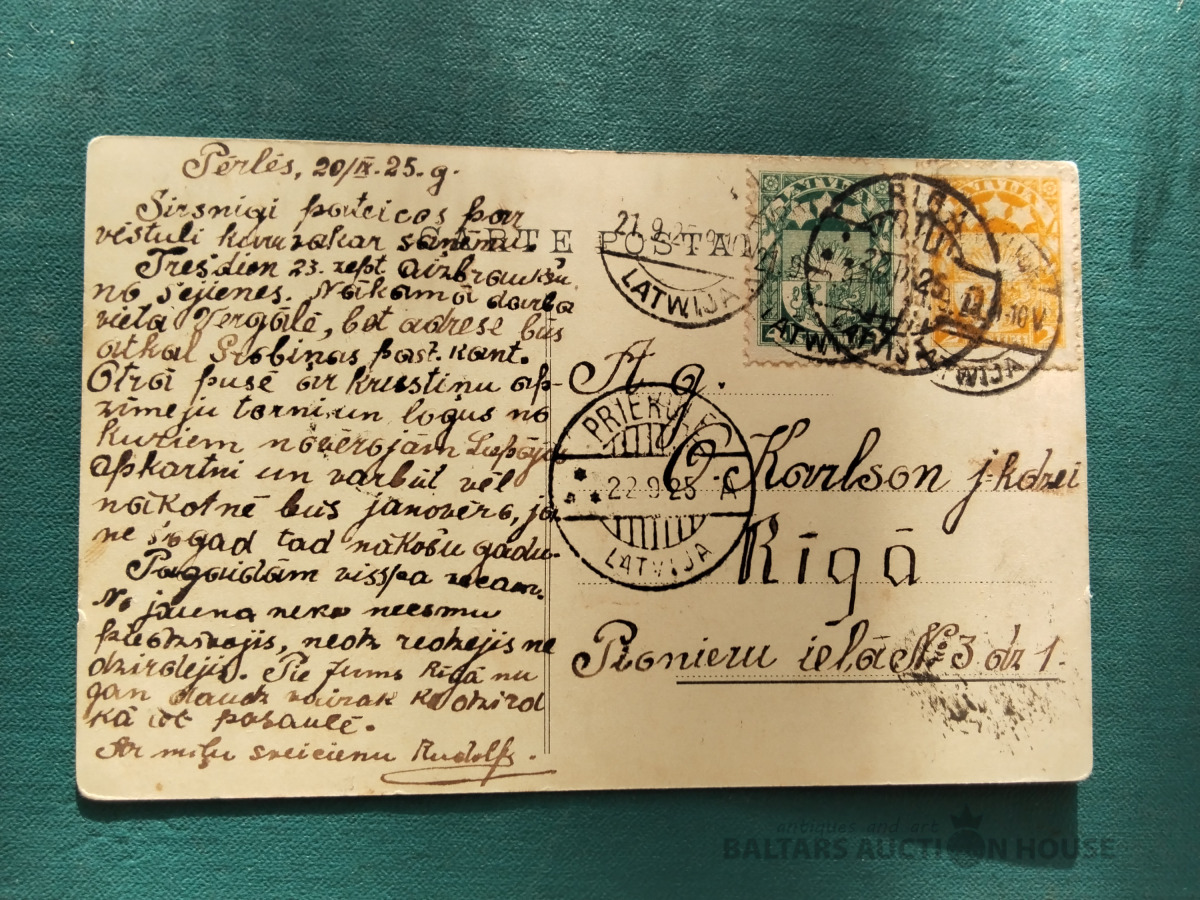 Pērlēs, 20/IX.25.g.
Sirsnīgi pateicos par
vēstuli kuru vakar saņēmu.
Trešdien 23. sept. aizbraukšu
no šejienes. Nākamā darba
vieta Vergālē, bet adrese būs
atkal Grobiņas past. kant.
Otrā pusē ar krustiņu ap-
zīmēju torni un logus no
kuriem novērojām Liepājas
apkārtni un varbūt vēl
nākotnē būs janovēro, ja
ne šogad tad nākošu gadu.
Pagaidām vispa vecam.
No jauna neko neesmu
piedzīvojis, nedz redzējis ne
dzirdējis. Pie Jums Rīgā nu
gan daudz vairāk ko dzird
kā iet pasaulē.
Ar mīļu sveicienu Rudolfs.
CARTE POSTALE
A. g.
O. Karlson j-kdzei
Rīgā
Pionieru ielā № 3 dz 1.
LATVIJA
LATVIJA
21.9.25
LATWIJA
RIGA
LATWIJA
PRIEKULE
22.9.25 A
LATVIJA
antiques and art
BALTARS AUCTION HOUSE